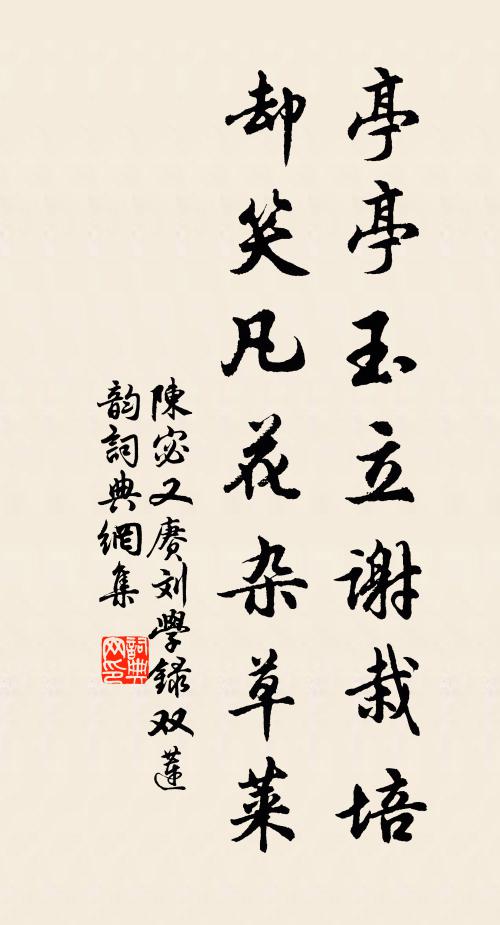 亭亭玉立谢栽培
却笑凡花杂草莱
陳宓又赓刘學録双蓮
韵詞典網集
詞典网印